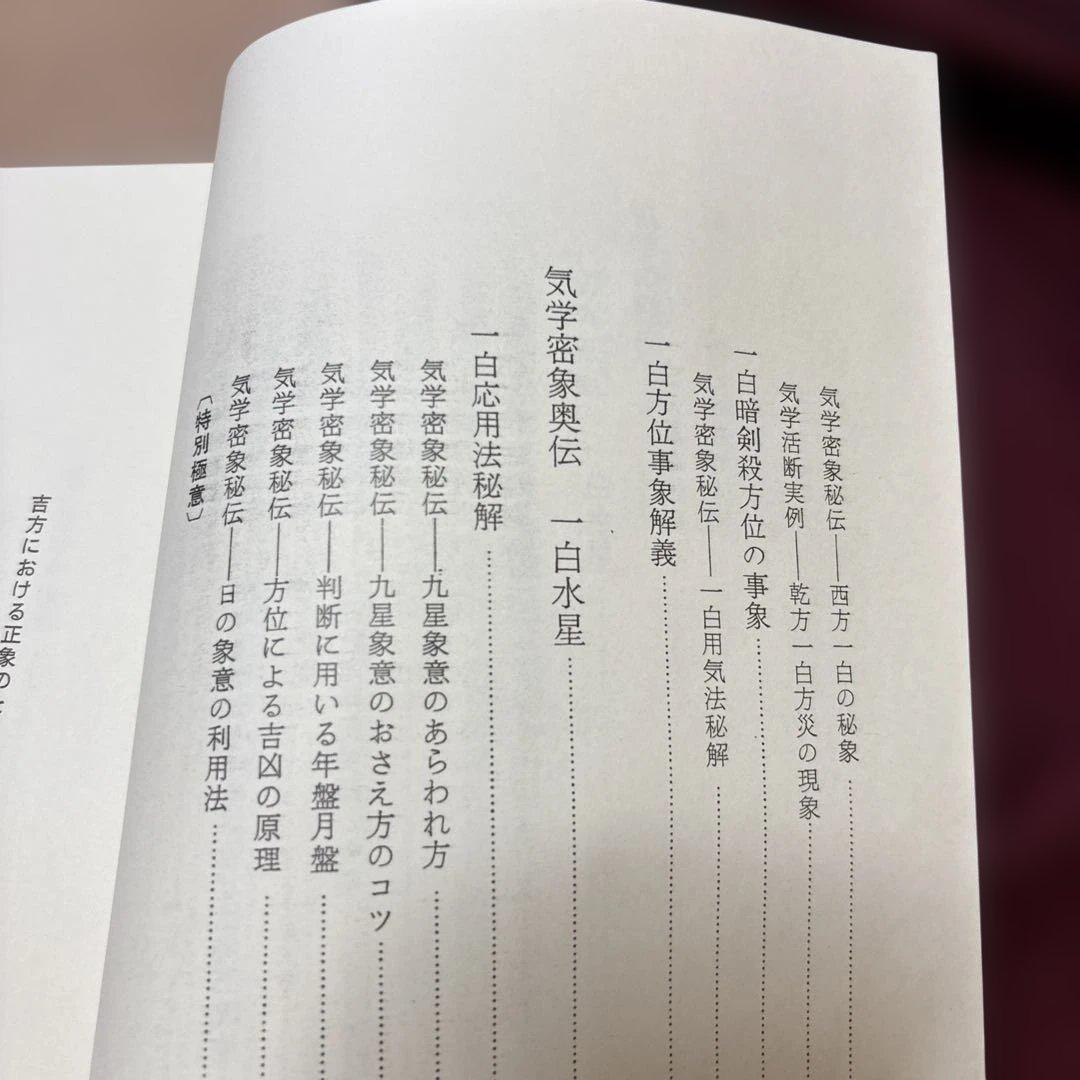 気学密象秘伝――西方一白の秘象
気学活断実例――乾方一白方災の現象
一白暗剣殺方位の事象
気学密象秘伝――一白用気法秘解
一白方位事象解義
気学密象奥伝　一白水星
一白応用法秘解
気学密象秘伝――九星象意のあらわれ方
気学密象秘伝――九星象意のおさえ方のコツ
気学密象秘伝――判断に用いる年盤月盤
気学密象秘伝――方位による吉凶の原理
気学密象秘伝――日の象意の利用法
〔特別極意〕
吉方における正象の